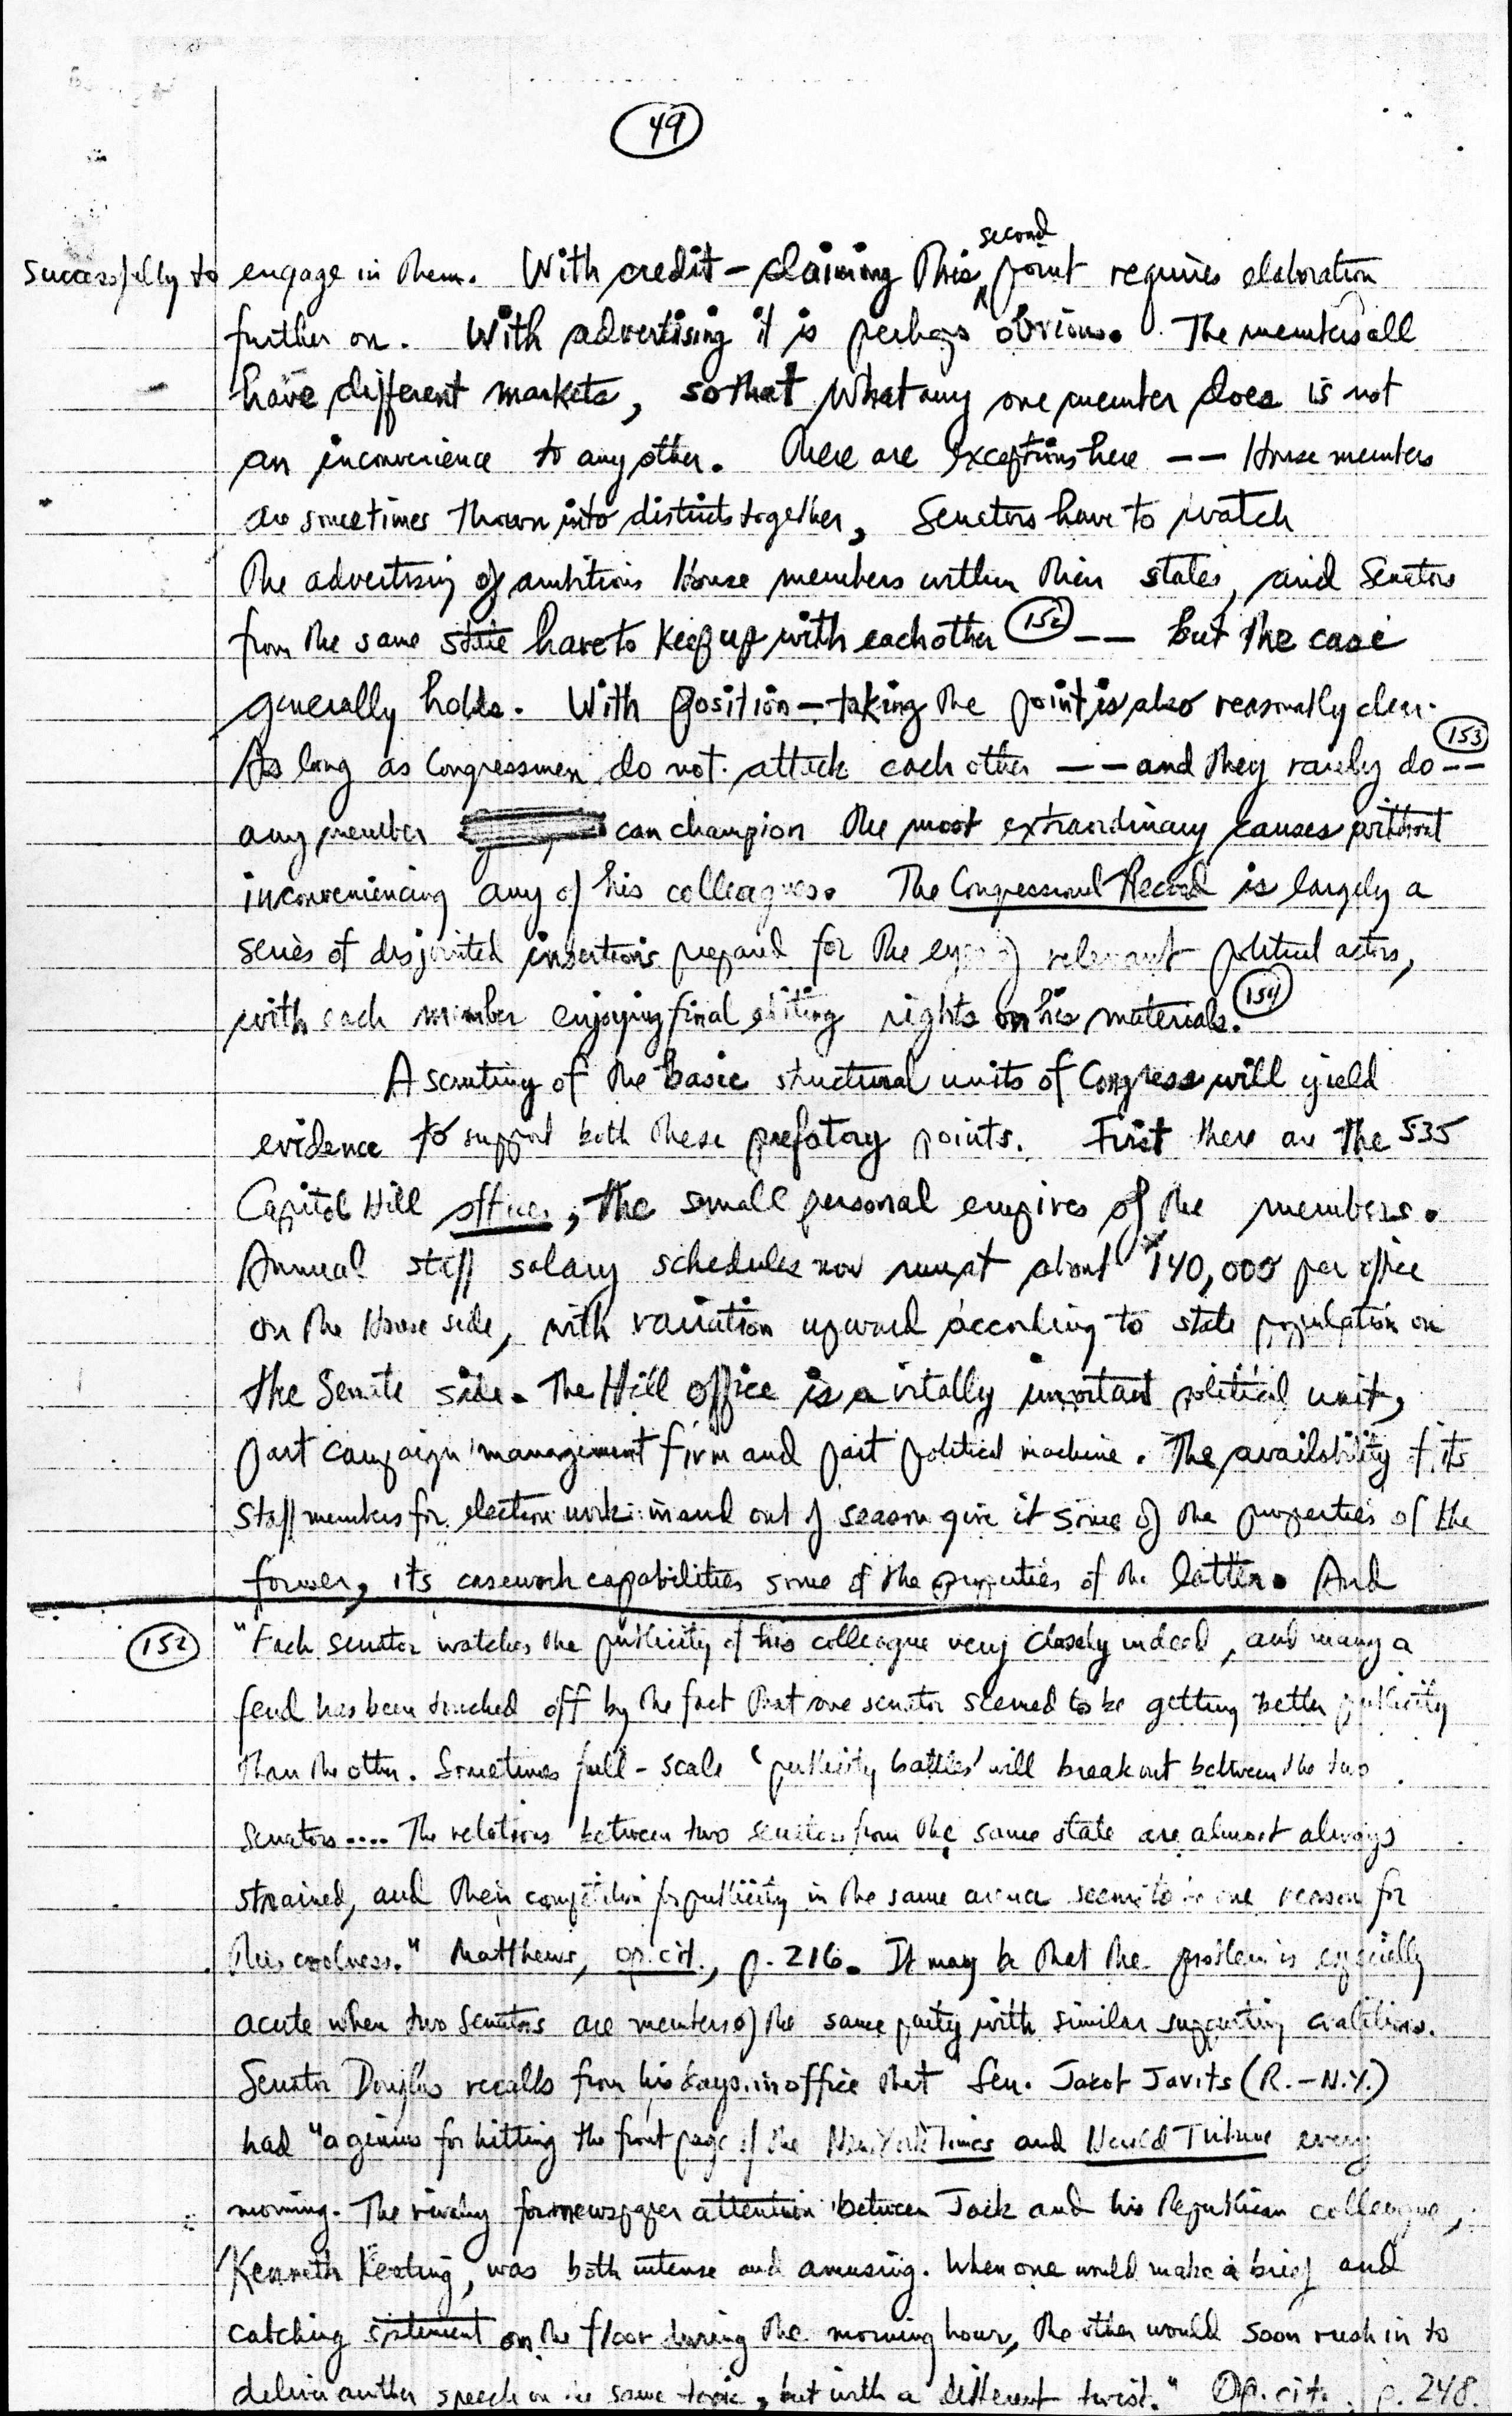 49
successfully to engage in them. With credit-claiming this second point requires elaboration
further on. With advertising it is perhaps obvious. The members all
have different markets, so that what any one member does is not
an inconvenience to any other. There are exceptions here -- House members
are sometimes thrown into districts together, Senators have to watch
the advertising of ambitious House members within their states, and Senators
from the same state have to keep up with each other (152) -- but the case
generally holds. With position-taking the point is also reasonably clear.
As long as Congressmen do not attack each other -- and they rarely do (153) --
any member can champion the most extraordinary causes without
inconveniencing any of his colleagues. The Congressional Record is largely a
series of disjointed insertions prepared for the eyes of relevant political actors,
with each member enjoying final editing rights on his materials. (154)
A scrutiny of the basic structural units of Congress will yield
evidence to support both these prefatory points. First there are the 535
Capitol Hill offices, the small personal empires of the members.
Annual staff salary schedules now run at about $140,000 per office
on the House side, with variation upward according to state population on
the Senate side. The Hill office is a vitally important political unit,
part campaign management firm and part political machine. The availability of its
staff members for election work in and out of season give it some of the properties of the
former, its casework capabilities some of the properties of the latter. And
(152) "Each senator watches the publicity of his colleague very closely indeed, and many a
feud has been touched off by the fact that one senator seemed to be getting better publicity
than the other. Sometimes full-scale 'publicity battles' will break out between the two
senators.... The relations between two senators from the same state are almost always
strained, and their competition for publicity in the same arena seems to be one reason for
this coolness." Matthews, op. cit., p. 216. It may be that the problem is especially
acute when two Senators are members of the same party with similar supporting coalitions.
Senator Douglas recalls from his days in office that Sen. Jacob Javits (R.-N.Y.)
had "a genius for hitting the front page of the New York Times and Herald Tribune every
morning. The rivalry for newspaper attention between Jack and his Republican colleague,
Kenneth Keating, was both intense and amusing. When one would make a brief and
catching statement on the floor during the morning hour, the other would soon rush in to
deliver another speech on the same topic, but with a different twist." Op. cit., p. 248.